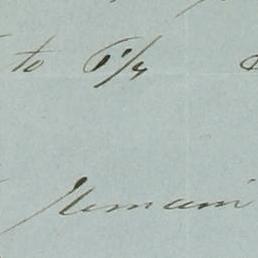 to 6 1/4
Remain